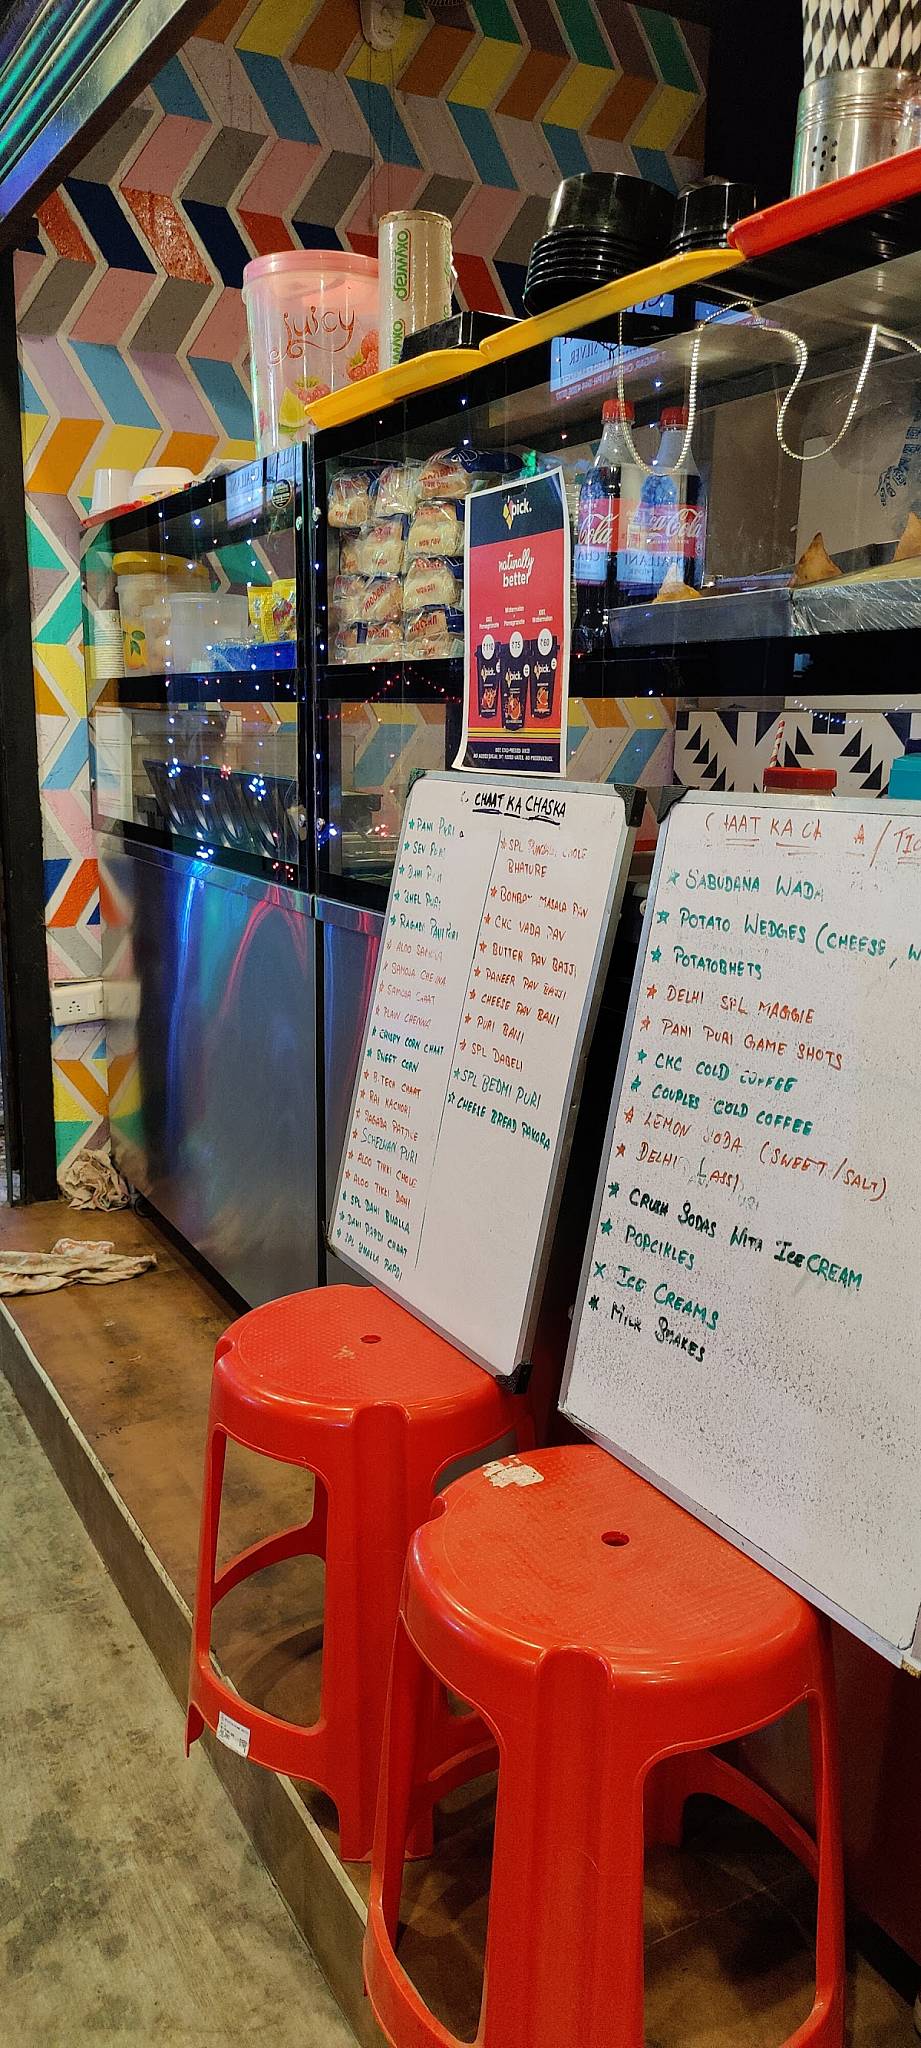 juicy
oxywrap
SILVER
Coca-Cola
pick.
naturally
better
Watermelon
Pomegranate
Watermelon
₹110
₹75
₹60
pick.
pick.
pick.
CHAAT KA CHASKA
* PANI PURI
* SEV PURI
* DAHI PURI
* BHEL PURI
* RAGADA PANI PURI
* ALOO SAMOSA
* SAMOSA CHENNA
* SAMOSA CHAAT
* PLAIN CHENNA
* CRISPY CORN CHAAT
* SWEET CORN
* B.TECH CHAAT
* RAJ KACHORI
* RAGADA PATTICE
* SCHEZWAN PURI
* ALOO TIKKI CHOLE
* ALOO TIKKI DAHI
* SPL DAHI BHALLA
* DAHI PAPDI CHAAT
* SPL BHALLA PAPDI
* SPL PUNJABI CHOLE
BHATURE
* BOMBAY MASALA PAV
* CKC VADA PAV
* BUTTER PAV BAJJI
* PANEER PAV BAJJI
* CHEESE PAV BAJJI
* PURI BAJI
* SPL DABELI
* SPL BEDMI PURI
* CHEESE BREAD PAKORA
HAAT KA CH A / TIC
* SABUDANA WADA
* POTATO WEDGES (CHEESE, W
* POTATOBHETS
* DELHI SPL MAGGIE
* PANI PURI GAME SHOTS
* CKC COLD COFFEE
* COUPLES COLD COFFEE
* LEMON SODA (SWEET/SALT)
* DELHI LASSI
* CRUSH SODAS WITH ICE CREAM
* POPCIKLES
* ICE CREAMS
* MILK SHAKES